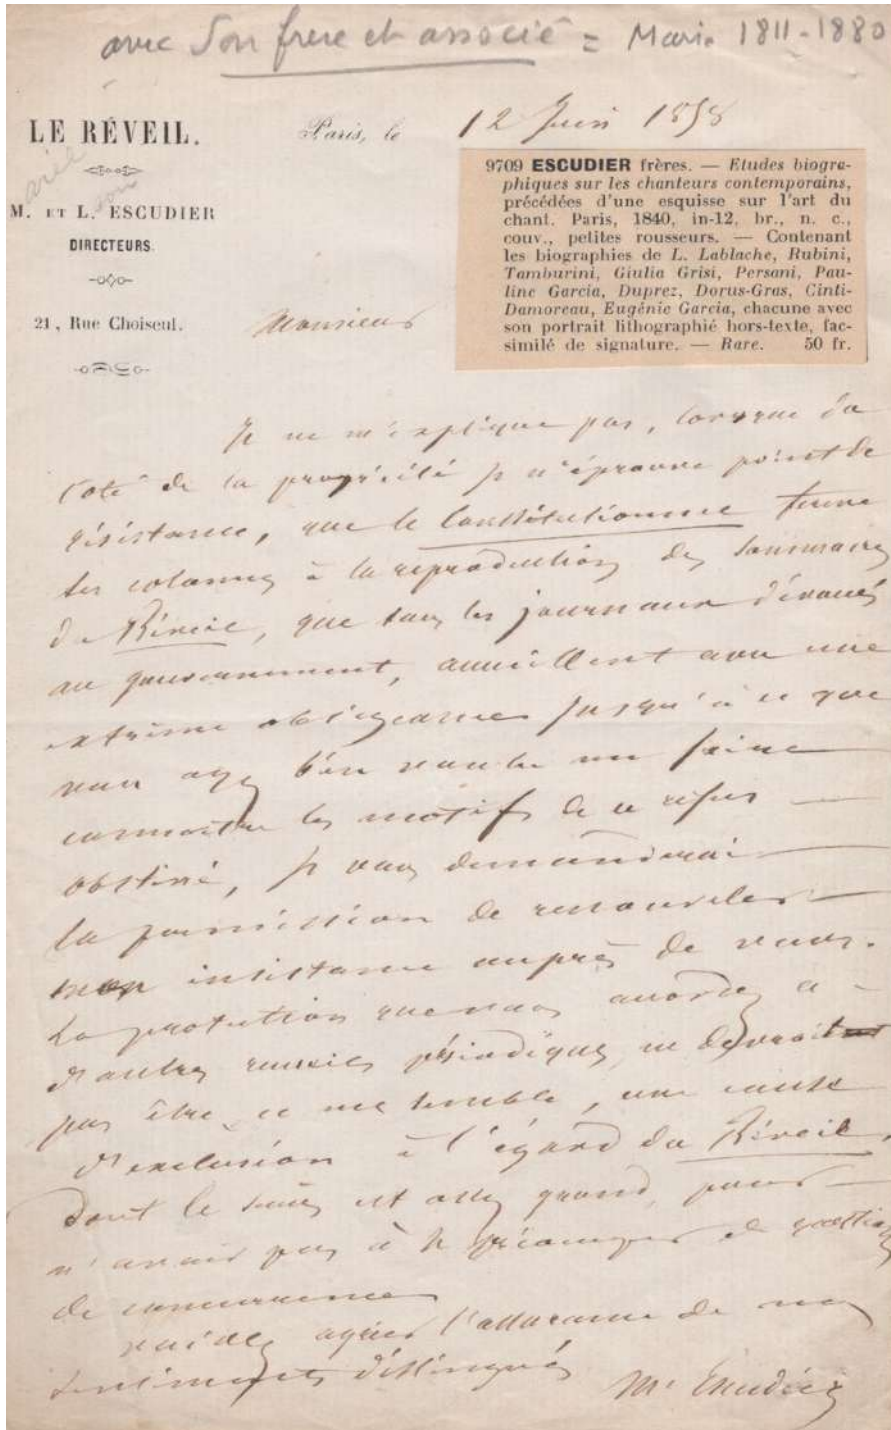 avec son frere et associé = Marie 1811-1880
LE RÉVEIL.
Paris, le 12 Juin 1858
M. ET L. ESCUDIER
DIRECTEURS.
21, Rue Choiseul.
9709 ESCUDIER frères. — Etudes biogra-
phiques sur les chanteurs contemporains,
précédées d'une esquisse sur l'art du
chant. Paris, 1840, in-12, br., n. c.,
couv., petites rousseurs. — Contenant
les biographies de L. Lablache, Rubini,
Tamburini, Giulia Grisi, Persani, Pau-
line Garcia, Duprez, Dorus-Gras, Cinti-
Damoreau, Eugénie Garcia, chacune avec
son portrait lithographié hors-texte, fac-
similé de signature. — Rare. 50 fr.
Monsieur
Je ne m'explique pas, lorsque du
coté de la propriété je n'éprouve point de
résistance, que le Constitutionnel ferme
ses colonnes à la reproduction des sommaires
du Réveil, que tous les journaux dévoués
au gouvernement, accueillent avec une
extrème obligeance. Jusqu'à ce que
vous ayez bien voulu me faire
connaitre les motifs de ce refus
obstiné, je vous demanderai
la permission de renouveler
mon insistance auprès de vous.
La protection que vous accordez a
d'autres recueils périodiques, ne devrait
pas être, ce me semble, une cause
d'exclusion à l'égard du Réveil,
dont le succès est assez grand, pour
n'avoir pas à se préoccuper de question
de concurrence
veuillez agréer l'assurance de mes
sentiments distingués
Me Escudier